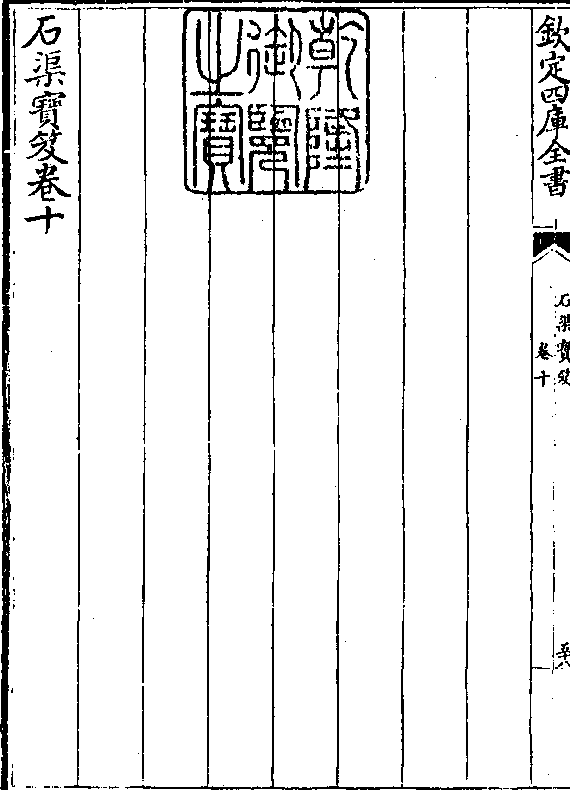 欽定四庫全書
石渠寶笈
卷十
乾隆
御覽
之寶
石渠寶笈卷十